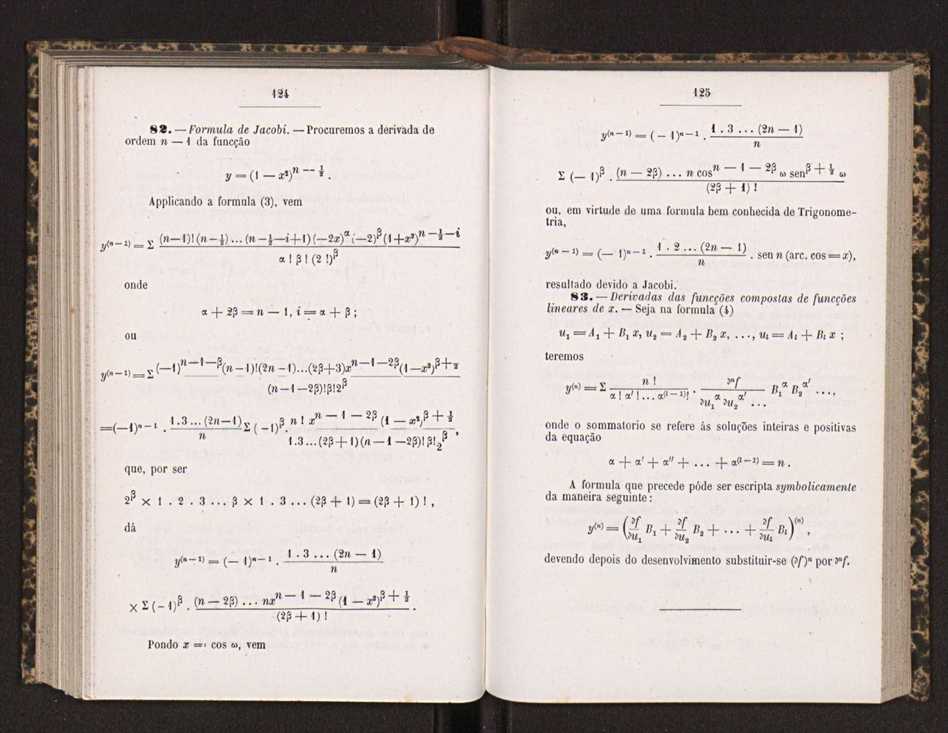 124
82. — Formula de Jacobi. — Procuremos a derivada de
ordem n — 1 da funcção
y = (1 — x²)^{n — 1/2} .
Applicando a formula (3), vem
y^{(n—1)} = Σ \frac{(n—1)! (n—½) ... (n—½—i+1) (—2x)^α (—2)^β (1+x²)^{n—½—i}}{α ! β ! (2 !)^β}
onde
α + 2β = n — 1, i = α + β ;
ou
y^{(n—1)} = Σ \frac{(—1)^{n—1—β} (n—1)! (2n—1)...(2β+3) x^{n—1—2β} (1—x²)^{β+½}}{(n—1—2β)! β! 2^β}
= (—1)^{n—1} . \frac{1.3 ... (2n—1)}{n} Σ (—1)^β . \frac{n ! x^{n—1—2β} (1—x²)^{β+½}}{1.3...(2β+1) (n—1—2β)! β! 2^β} ,
que, por ser
2^β × 1 . 2 . 3 ... β × 1 . 3 ... (2β + 1) = (2β + 1) ! ,
dá
y^{(n—1)} = (— 1)^{n—1} . \frac{1 . 3 ... (2n — 1)}{n}
× Σ (—1)^β . \frac{(n — 2β) ... nx^{n—1—2β} (1 — x²)^{β+½}}{(2β + 1) !} .
Pondo x = cos ω, vem
125
y^{(n—1)} = (— 1)^{n—1} . \frac{1 . 3 ... (2n — 1)}{n}
Σ (— 1)^β . \frac{(n — 2β) ... n cos^{n—1—2β} ω sen^{β+½} ω}{(2β + 1) !}
ou, em virtude de uma formula bem conhecida de Trigonome-
tria,
y^{(n—1)} = (— 1)^{n—1} . \frac{1 . 2 ... (2n — 1)}{n} . sen n (arc. cos = x),
resultado devido a Jacobi.
83. — Derivadas das funcções compostas de funcções
lineares de x. — Seja na formula (4)
u₁ = A₁ + B₁ x, u₂ = A₂ + B₂ x, ..., u_l = A_l + B_l x ;
teremos
y^{(n)} = Σ \frac{n !}{α ! α' ! ... α^{(l—1)}!} . \frac{∂^n f}{∂u₁^α ∂u₂^{α'} ...} B₁^α B₂^{α'} ...,
onde o sommatorio se refere ás soluções inteiras e positivas
da equação
α + α' + α'' + ... + α^{(l—1)} = n .
A formula que precede póde ser escripta symbolicamente
da maneira seguinte :
y^{(n)} = ( \frac{∂f}{∂u₁} B₁ + \frac{∂f}{∂u₂} B₂ + ... + \frac{∂f}{∂u_l} B_l )^{(n)} ,
devendo depois do desenvolvimento substituir-se (∂f)^n por ∂^n f.